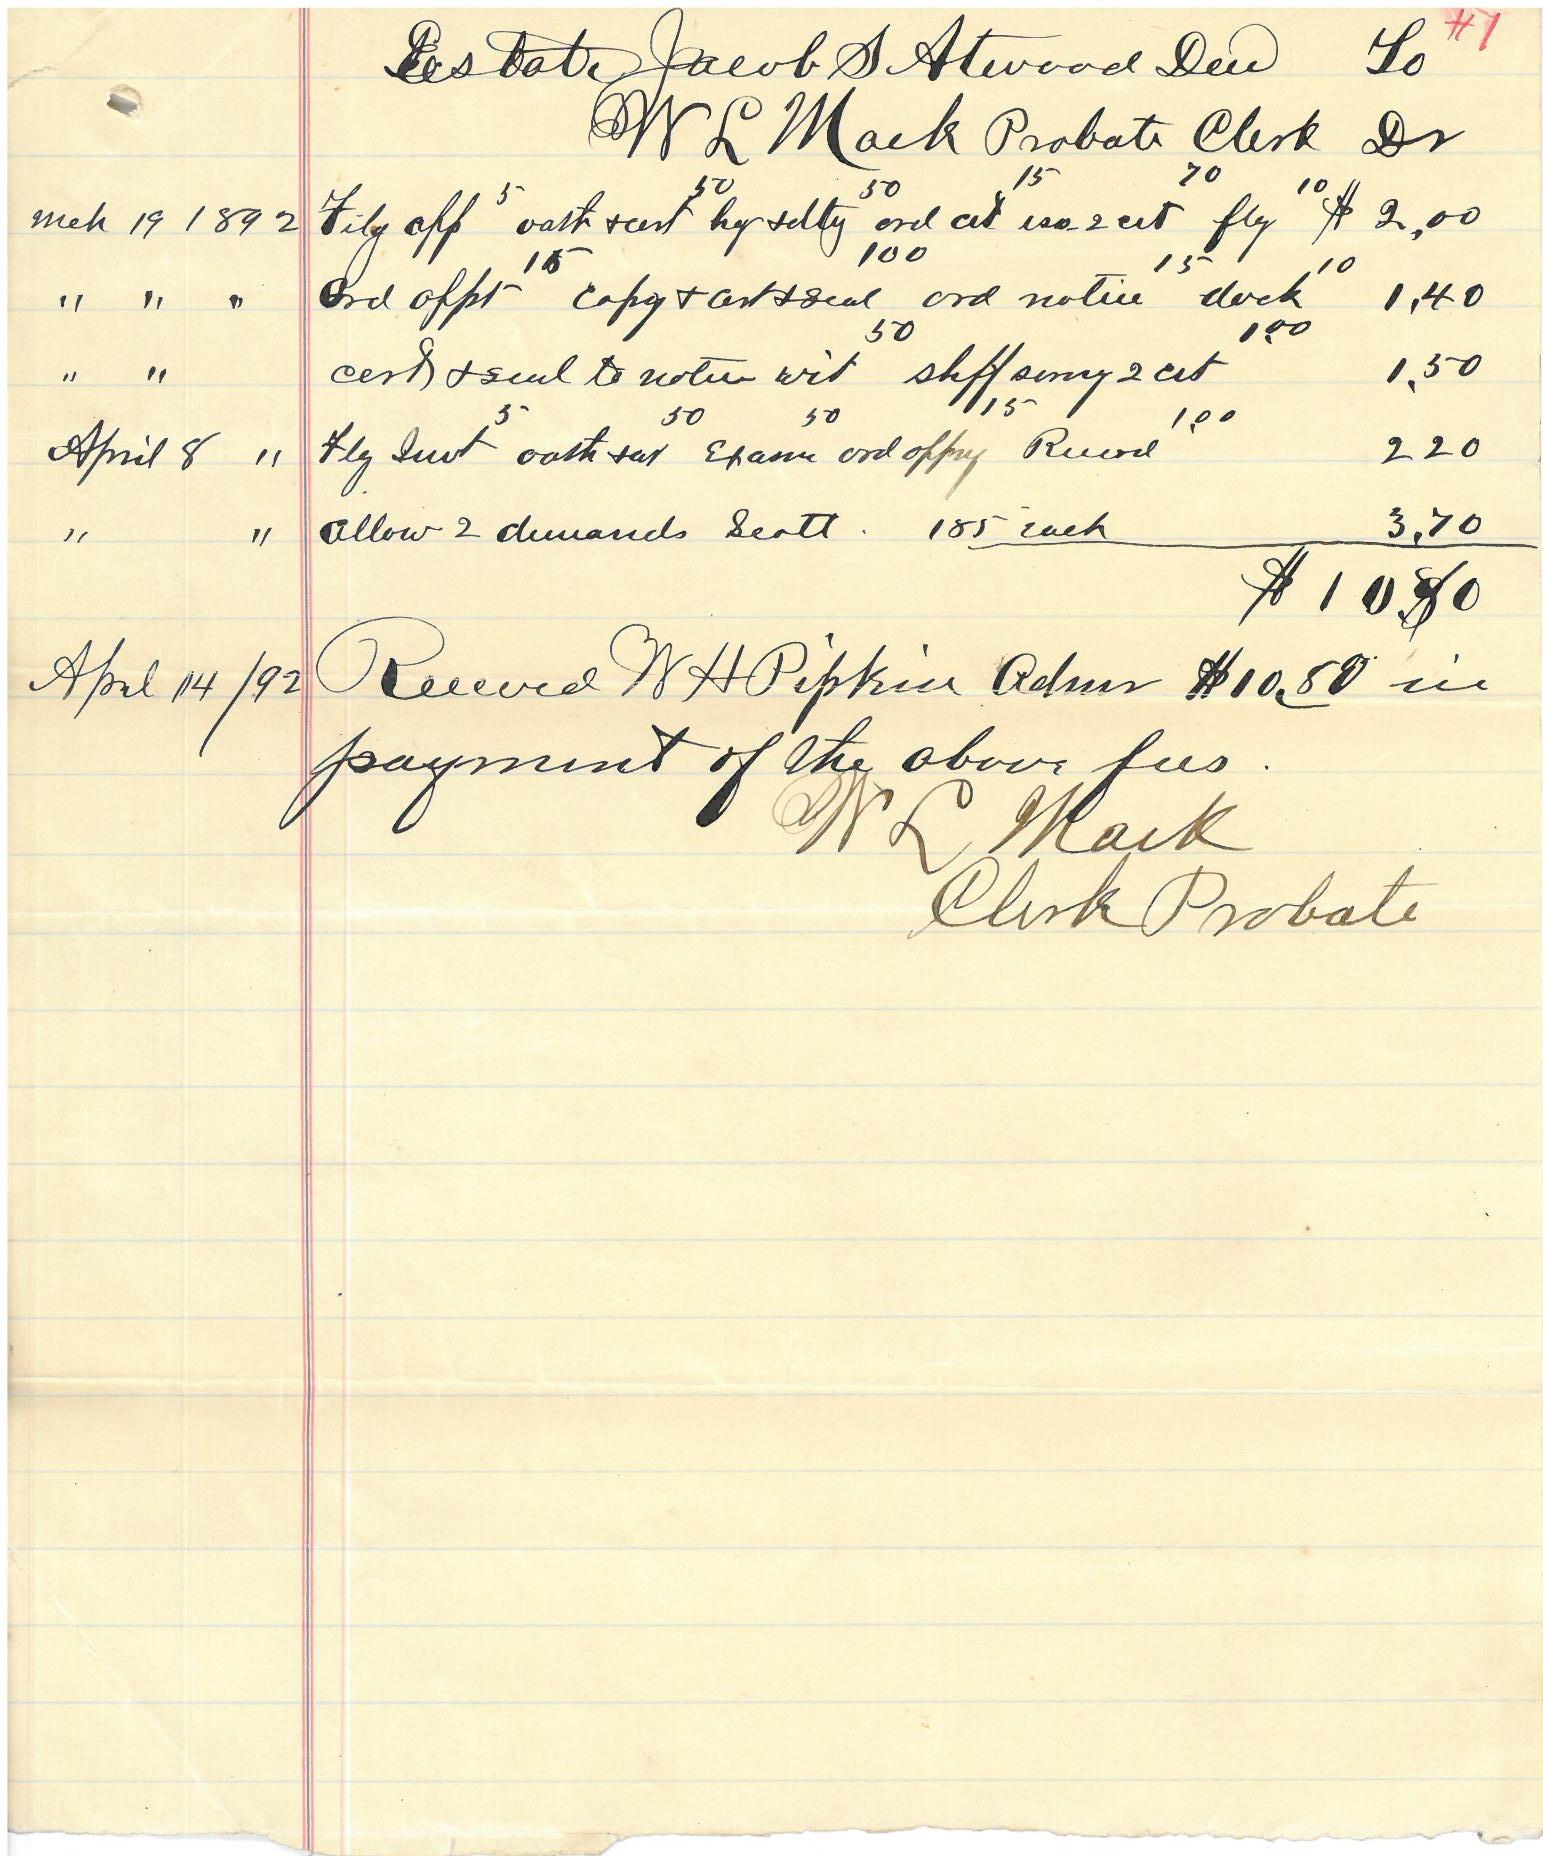 #1
Estate Jacob S Atwood Decd To
W L Mack Probate Clerk Dr
5 50 50 15 70 10
Mch 19 1892 Filg aff oath & cert hg & ord cit iss 2 cit flg $ 2,00
15 100 15 10
" " " Ord appt copy & cert & seal ord notice dock 1,40
50 1,00
" " cert & seal to notice writ shff 2 cit 1,50
5 50 50 15 1,00
April 8 " Flg Invt oath & Exam ord appg Record 2 20
" " allow 2 demands Scott. 185 each 3,70
$ 10 80
April 14/92 Received W H Pipkin Admr $10,80 in
payment of the above fees.
W L Mack
Clerk Probate